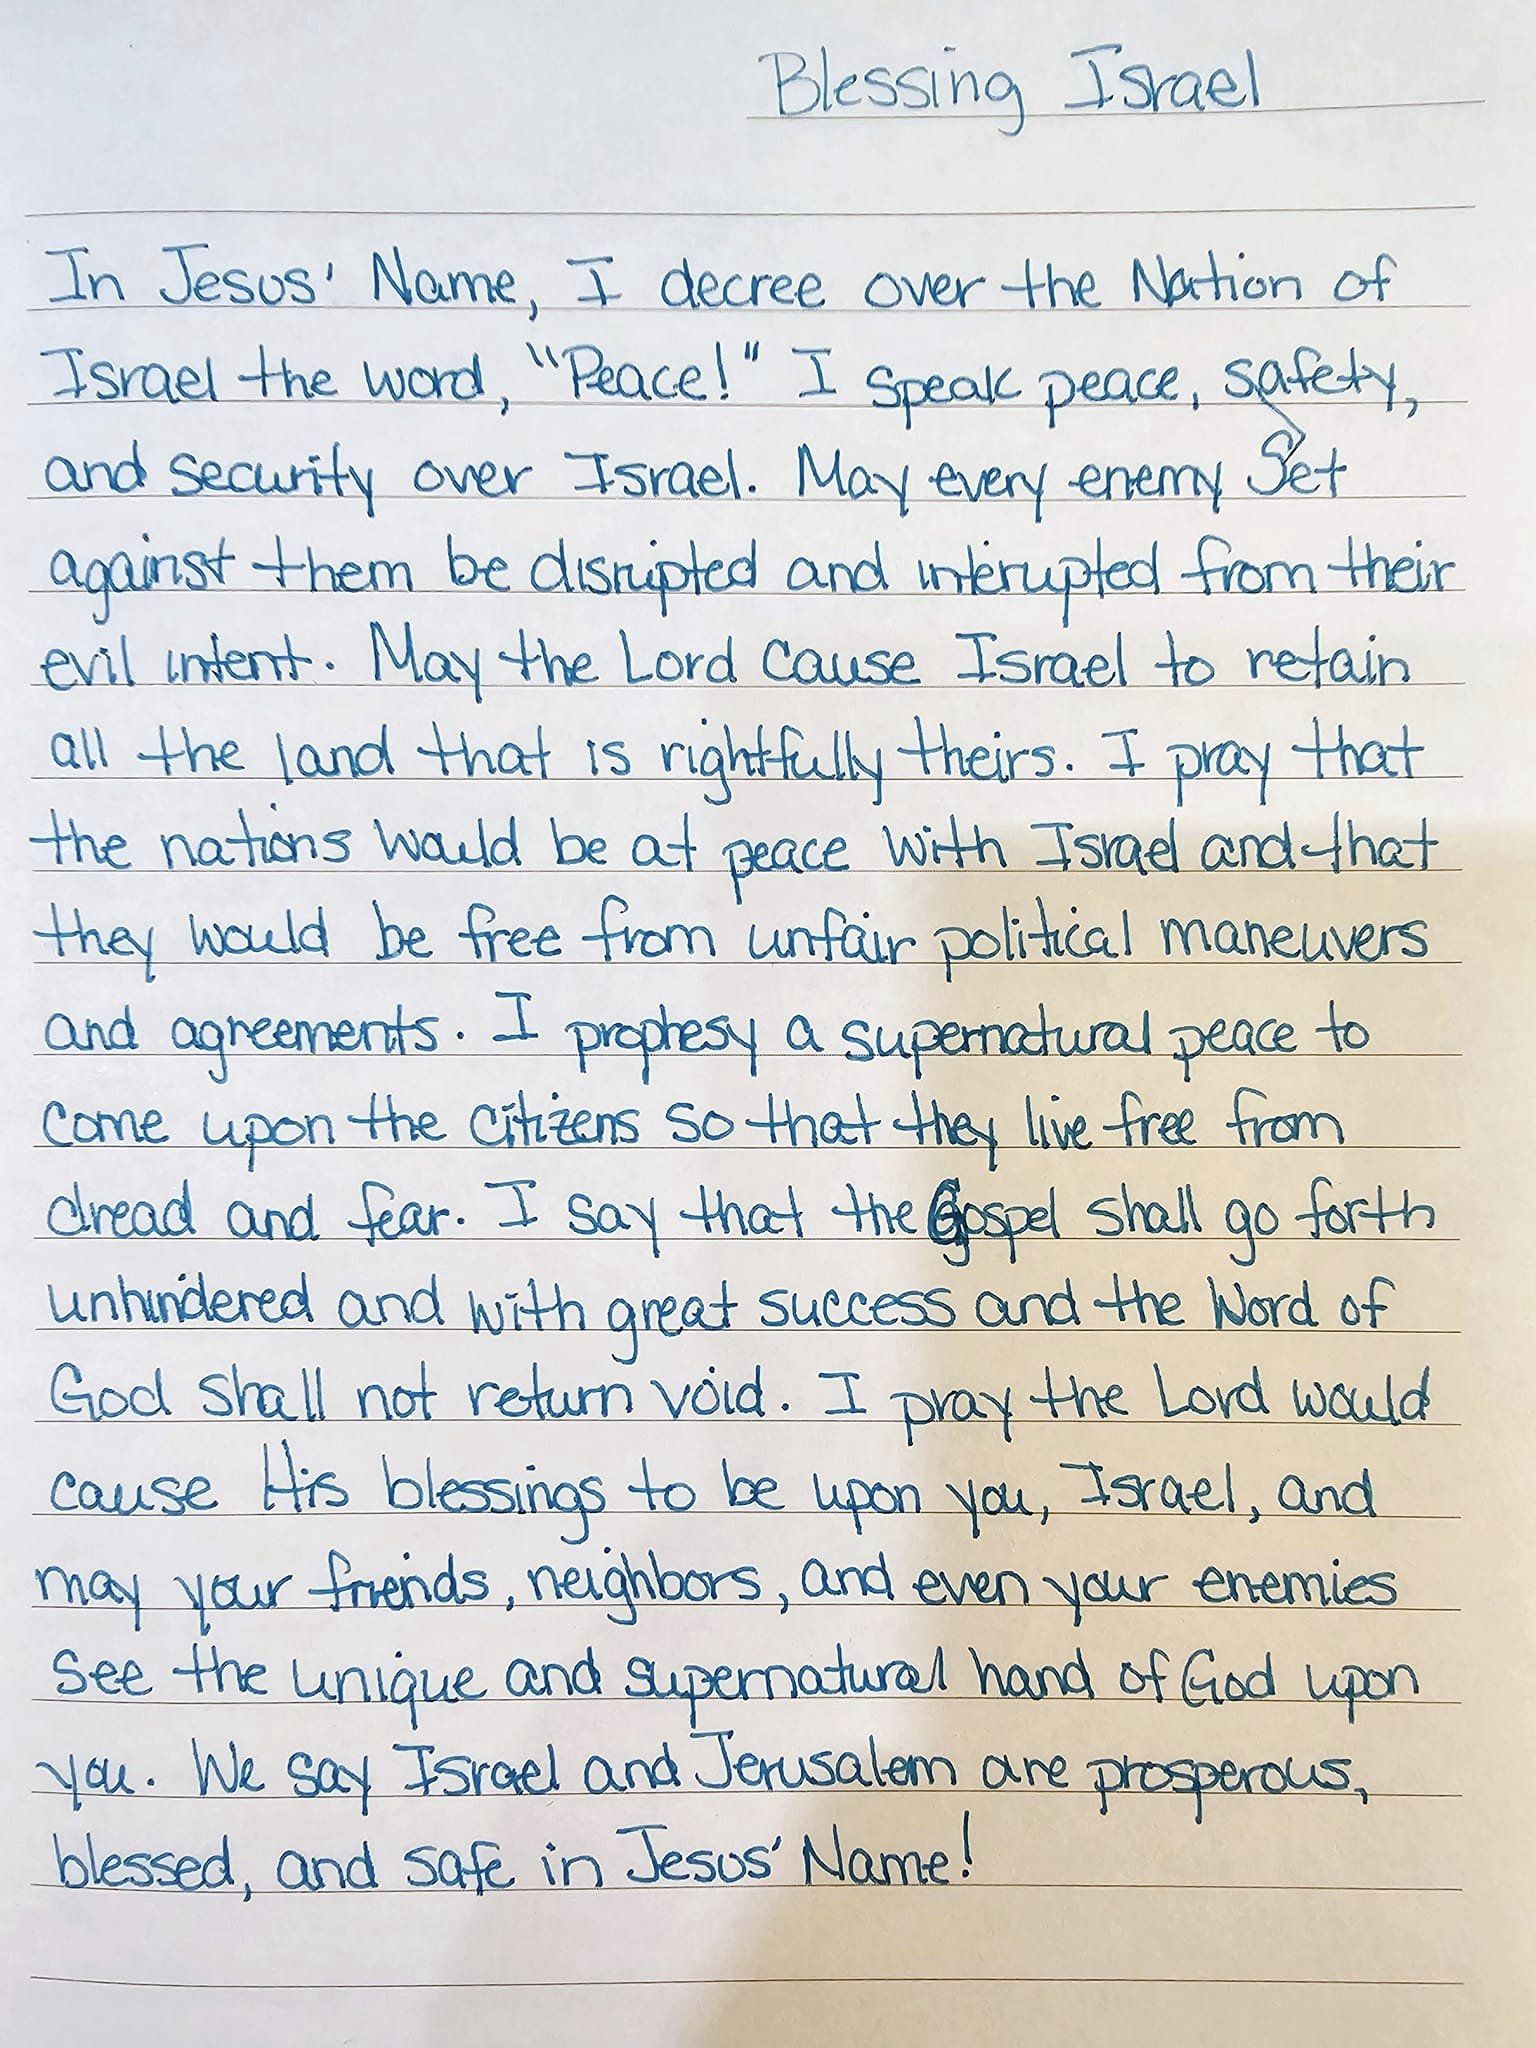 Blessing Israel
In Jesus' Name, I decree over the Nation of
Israel the word, "Peace!" I speak peace, safety,
and security over Israel. May every enemy set
against them be disrupted and interupted from their
evil intent. May the Lord cause Israel to retain
all the land that is rightfully theirs. I pray that
the nations would be at peace with Israel and that
they would be free from unfair political maneuvers
and agreements. I prophesy a supernatural peace to
come upon the citizens so that they live free from
dread and fear. I say that the Gospel shall go forth
unhindered and with great success and the Word of
God shall not return void. I pray the Lord would
cause His blessings to be upon you, Israel, and
may your friends, neighbors, and even your enemies
see the unique and supernatural hand of God upon
you. We say Israel and Jerusalem are prosperous,
blessed, and safe in Jesus' Name!